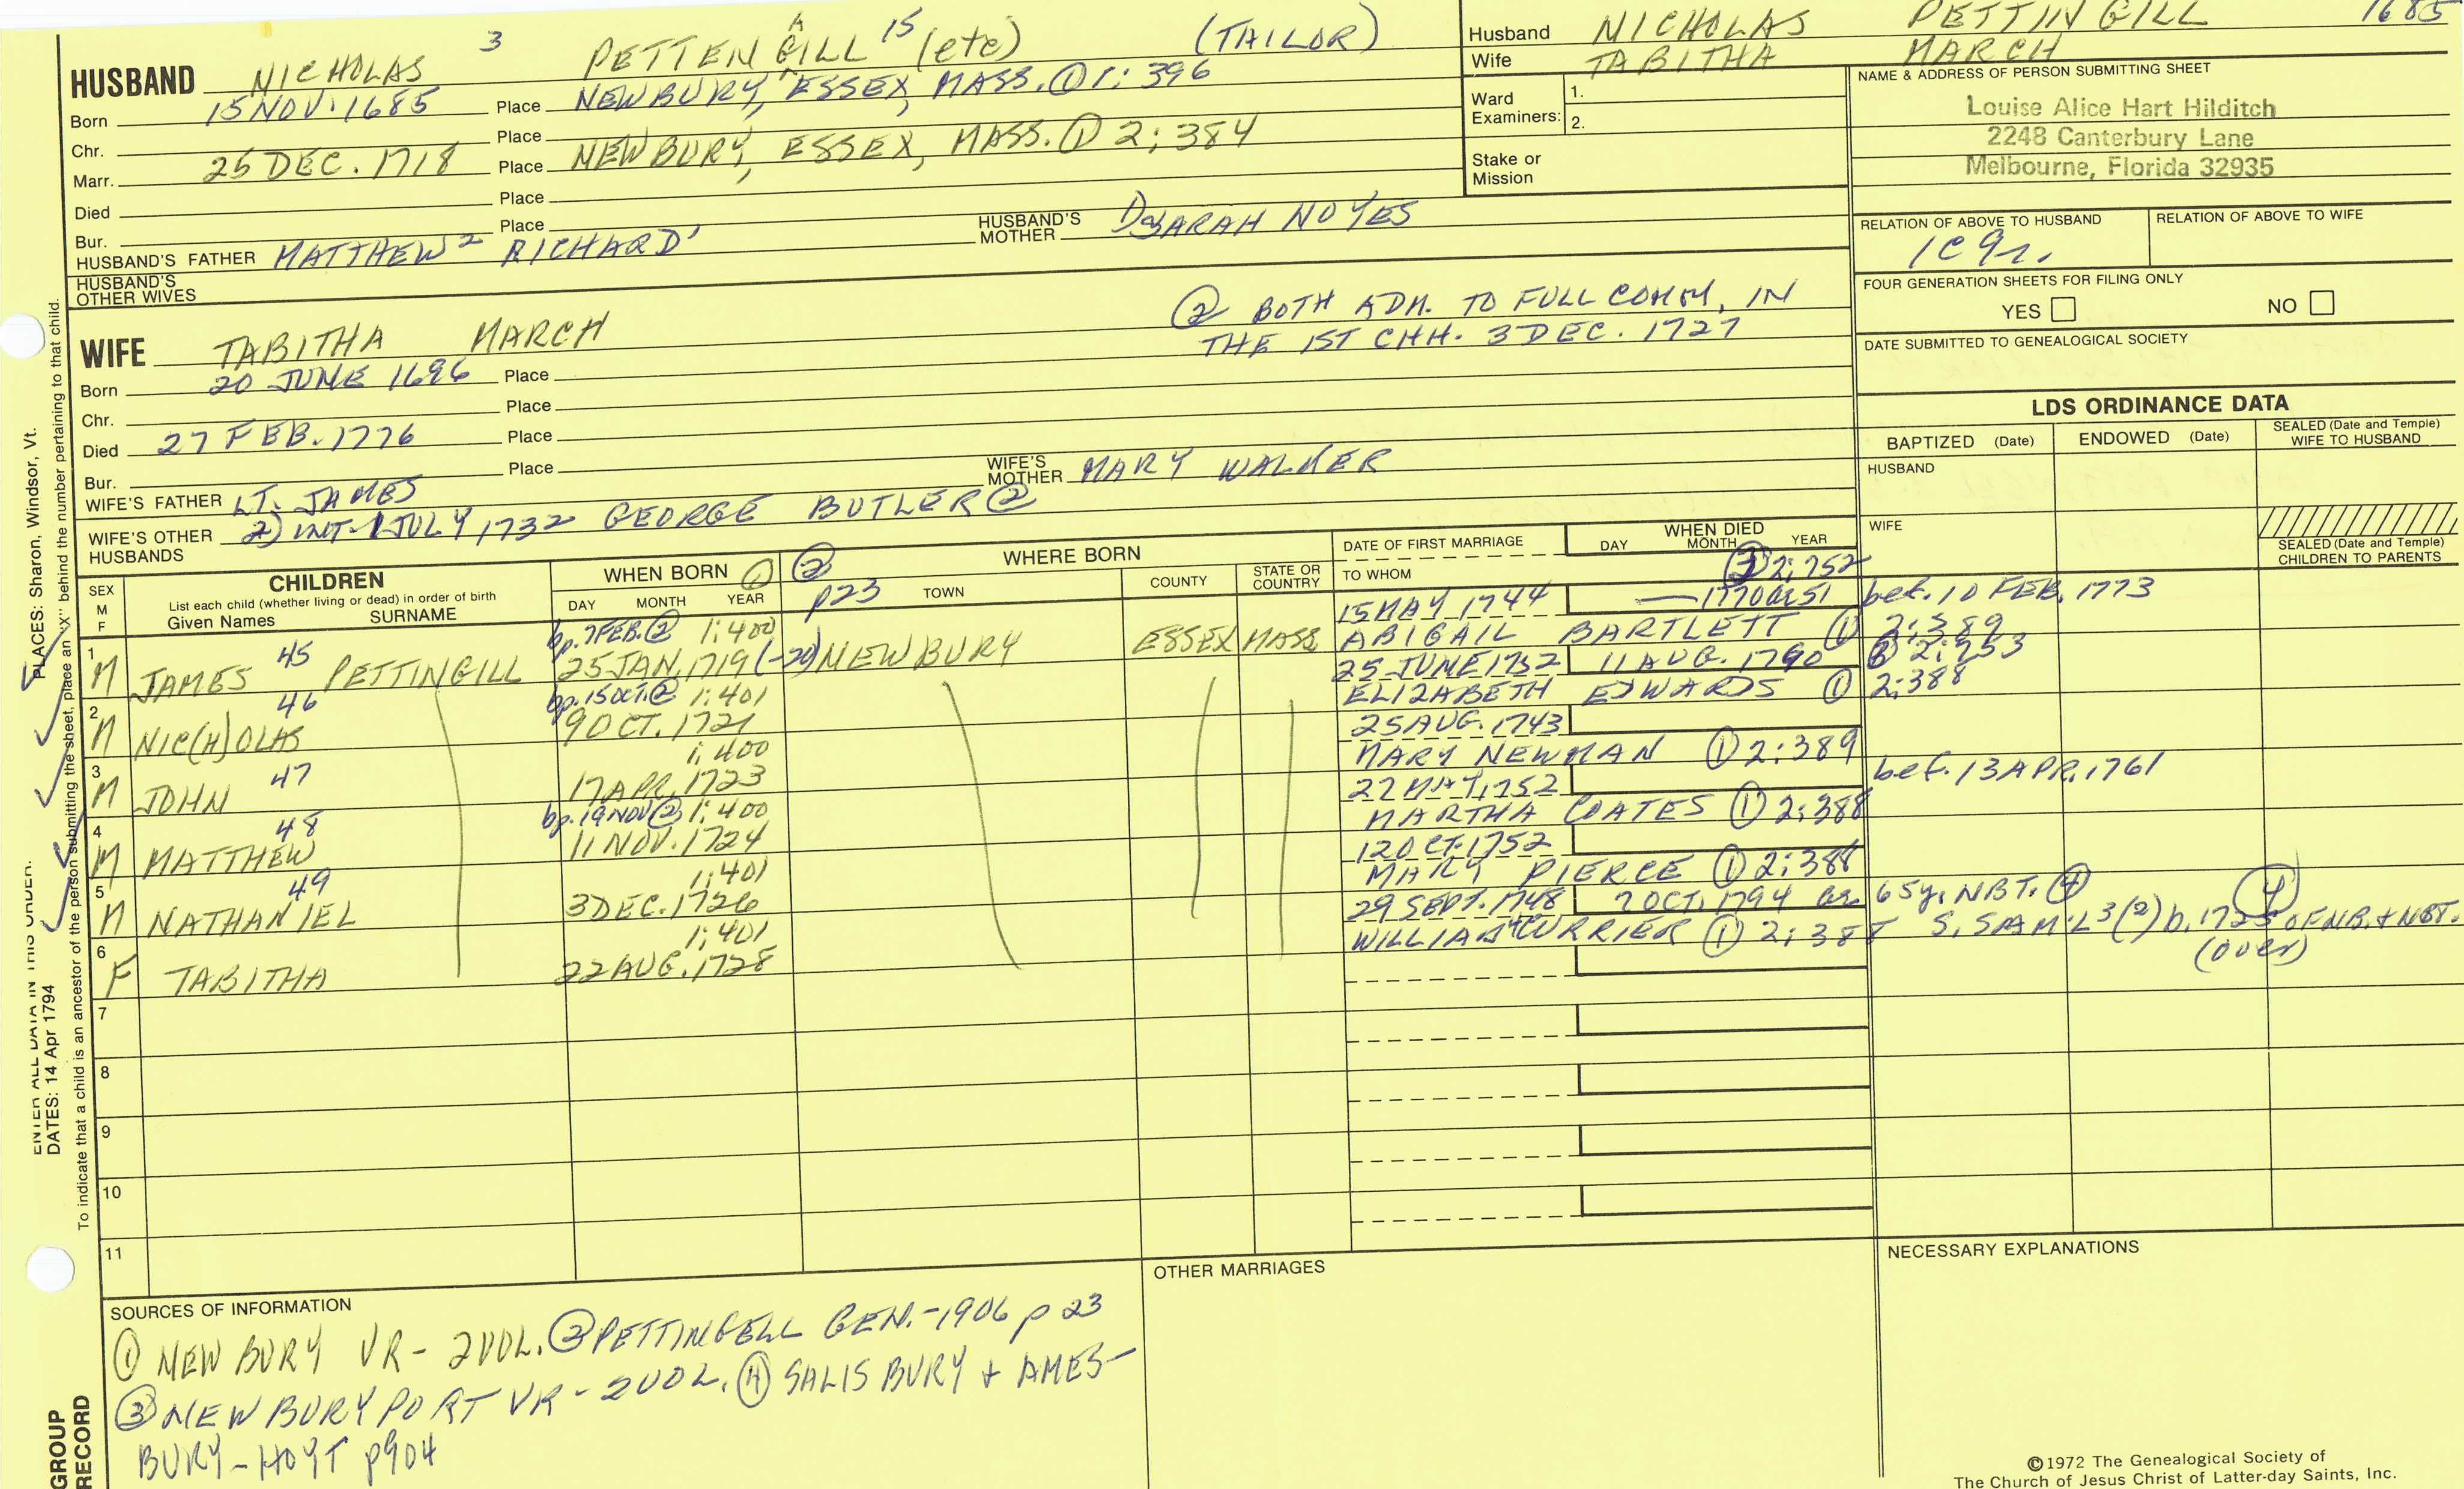 HUSBAND NICHOLAS 3 PETTENGILL A 15 (etc) (TAILOR)
Born 15 NOV. 1685 Place NEWBURY, ESSEX, MASS. ① 1: 396
Chr. Place
Marr. 25 DEC. 1718 Place NEWBURY, ESSEX, MASS. ① 2: 384
Died Place
Bur. Place
HUSBAND'S FATHER MATTHEW 2 RICHARD 1 HUSBAND'S MOTHER SARAH NOYES
HUSBAND'S OTHER WIVES
② BOTH ADM. TO FULL COMM, IN
THE 1ST CHH. 3 DEC. 1727
WIFE TABITHA MARCH
Born 20 JUNE 1696 Place
Chr. Place
Died 27 FEB. 1776 Place
Bur. Place
WIFE'S FATHER LT. JAMES WIFE'S MOTHER MARY WALKER
WIFE'S OTHER HUSBANDS 2) INT. 1 JULY 1732 GEORGE BUTLER ②
Husband NICHOLAS PETTINGILL 1685
Wife TABITHA MARCH
Ward Examiners: 1.
2.
Stake or Mission
NAME & ADDRESS OF PERSON SUBMITTING SHEET
Louise Alice Hart Hilditch
2248 Canterbury Lane
Melbourne, Florida 32935
RELATION OF ABOVE TO HUSBAND RELATION OF ABOVE TO WIFE
1C 9r.
FOUR GENERATION SHEETS FOR FILING ONLY
YES NO
DATE SUBMITTED TO GENEALOGICAL SOCIETY
LDS ORDINANCE DATA
BAPTIZED (Date) ENDOWED (Date) SEALED (Date and Temple) WIFE TO HUSBAND
HUSBAND
WIFE
SEALED (Date and Temple) CHILDREN TO PARENTS
SEX M F
CHILDREN
List each child (whether living or dead) in order of birth
Given Names SURNAME
WHEN BORN ①
DAY MONTH YEAR
② p23
WHERE BORN
TOWN COUNTY STATE OR COUNTRY
DATE OF FIRST MARRIAGE
TO WHOM
WHEN DIED
DAY MONTH YEAR
③ 2: 252
1 M JAMES 45 PETTINGILL bp. 7 FEB. ② 1: 400 25 JAN. 1719 (-20) NEWBURY ESSEX MASS 15 MAY 1744 1770 bet. 10 FEB. 1773
ABIGAIL BARTLETT ① 2: 389
2 M NIC(H)OLAS 46 bp. 15 OCT. ② 1: 401 9 OCT. 1721 25 JUNE 1752 11 AUG. 1790 ③ 2: 253
ELIZABETH EDWARDS ① 2: 388
3 M JOHN 47 1: 400 17 APR. 1723 25 AUG. 1743
MARY NEWMAN ① 2: 389
4 M MATTHEW 48 bp. 19 NOV ② 1: 400 11 NOV. 1724 bef. 13 APR. 1761
MARTHA COATES ① 2: 388
5 M NATHANIEL 49 1: 401 3 DEC. 1726 12 OCT. 1752
MARY PIERCE ① 2: 388
6 F TABITHA 1: 401 22 AUG. 1728 29 SEPT. 1748 2 OCT. 1794 65 y. NBT. ④
WILLIAM 4 CURRIER ① 2: 388 S. SAM'L 3 (2) OF NB. & NBT. ④
(over)
7
8
9
10
11
SOURCES OF INFORMATION
① NEWBURY VR - 2 VOL. ② PETTINGELL GEN. - 1906 p 23
③ NEWBURYPORT VR - 2 VOL. ④ SALISBURY + AMES-
BURY - HOYT p904
OTHER MARRIAGES
NECESSARY EXPLANATIONS
©1972 The Genealogical Society of
The Church of Jesus Christ of Latter-day Saints, Inc.
PLACES: Sharon, Windsor, Vt.
ENTER ALL DATA IN THIS ORDER:
DATES: 14 Apr 1794
To indicate that a child is an ancestor of the person submitting the sheet, place an "X" behind the number pertaining to that child.
GROUP
RECORD